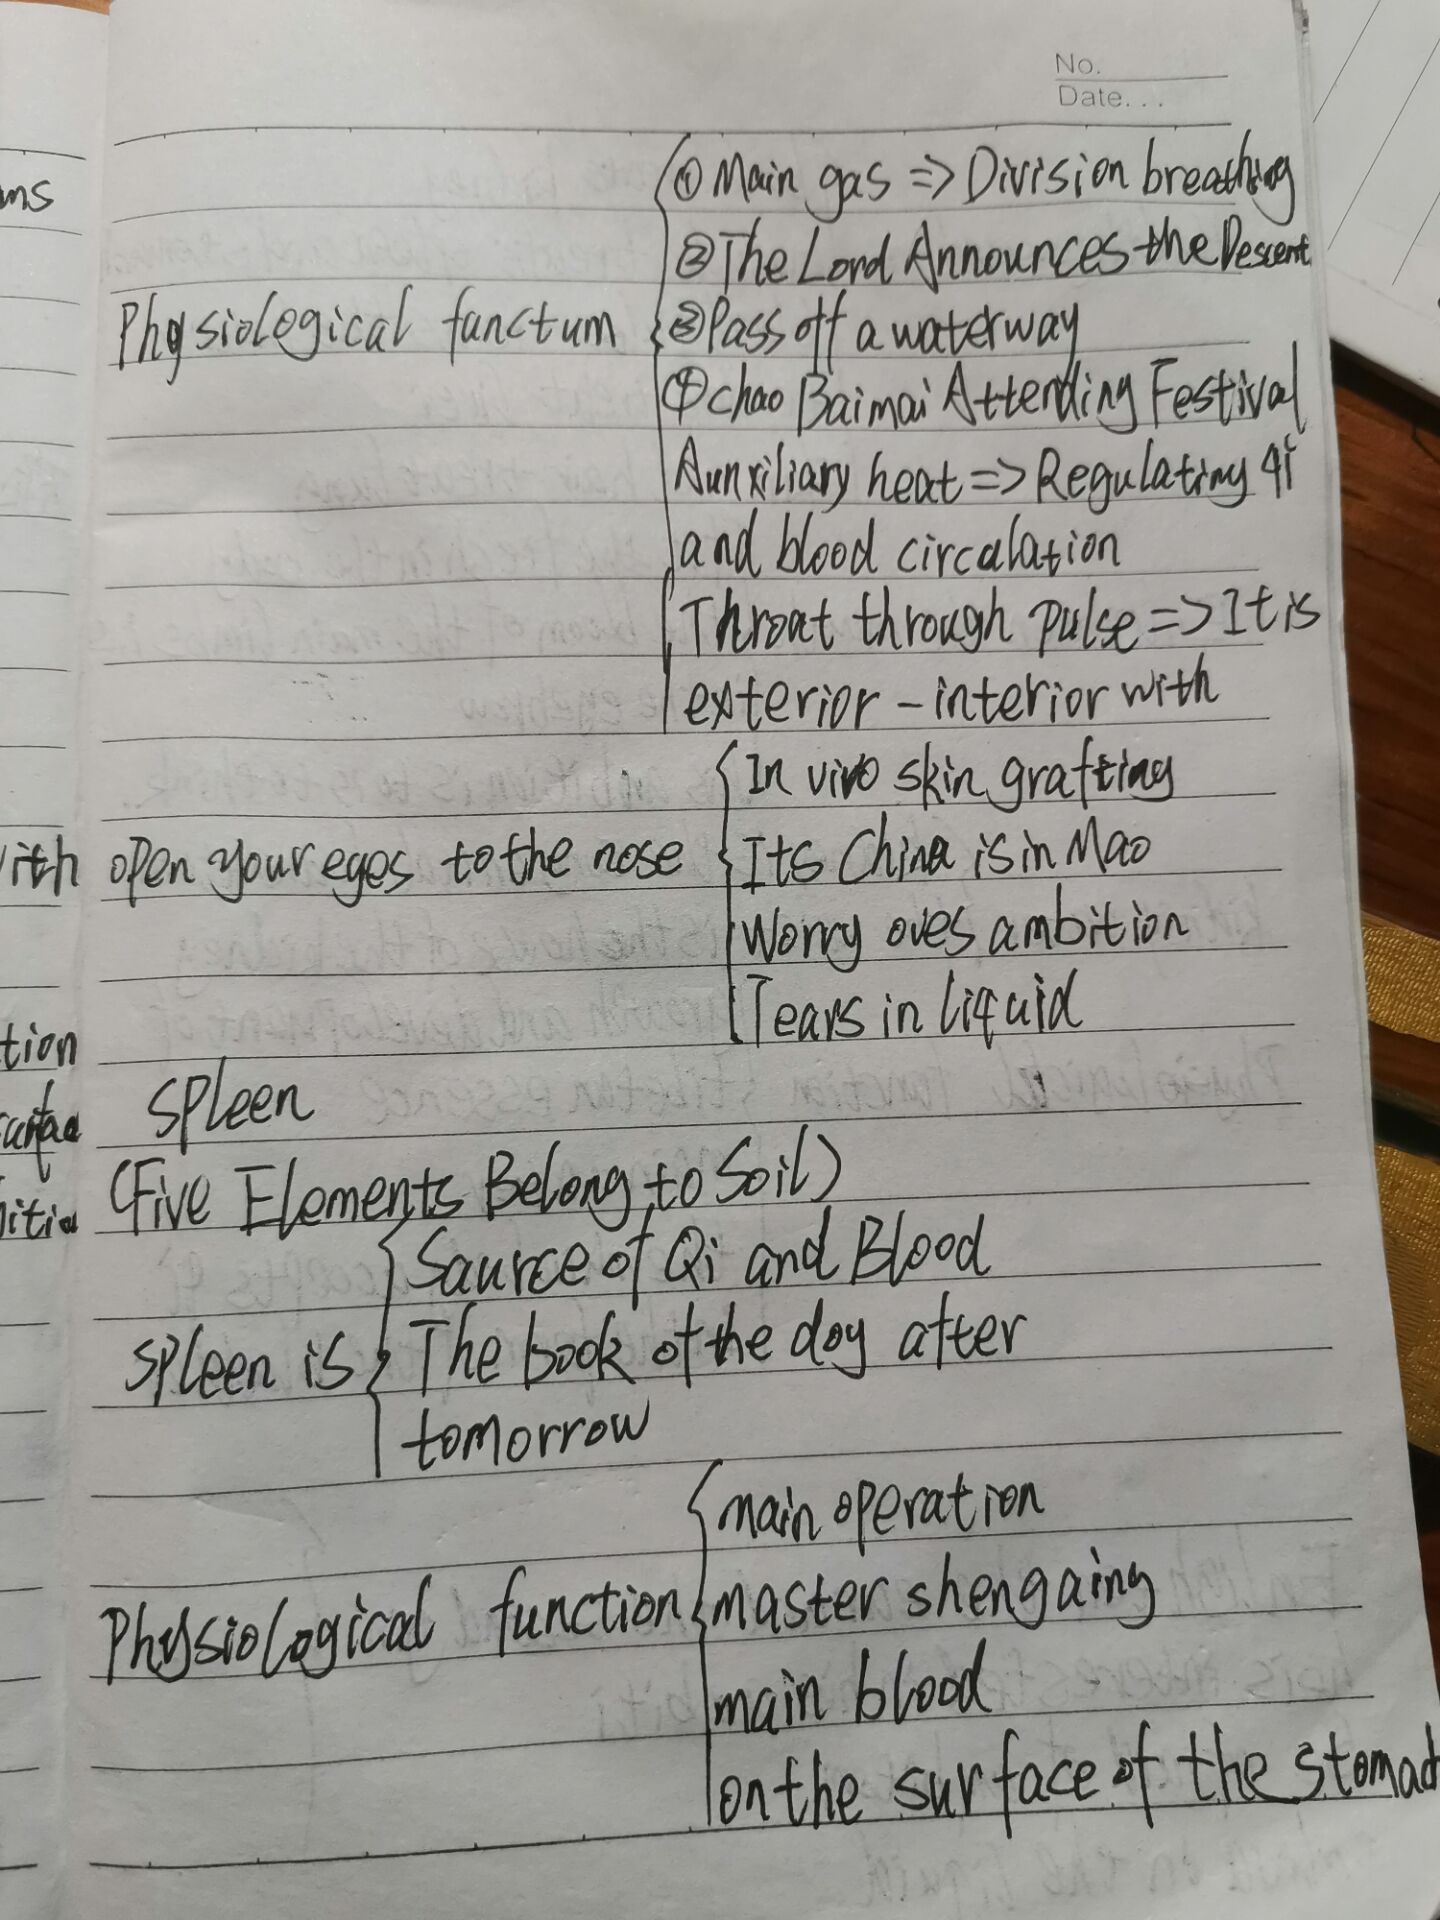 No.
Date...
ms
① Main gas => Division breathing
② The Lord Announces the Descent
Physiological functum
③ Pass off a waterway
④ chao Baimai Attending Festival
Aunxiliary heat => Regulating qi
and blood circalation
Throat through pulse => It is
exterior - interior with
In vivo skin grafting
with open your eyes to the nose
Its China is in Mao
Worry oves ambition
Tears in liquid
tion
spleen
(Five Elements Belong to Soil)
Saurce of Qi and Blood
spleen is
The book of the day after
tomorrow
main operation
Physiological function
master shengaing
main blood
on the surface of the stomach